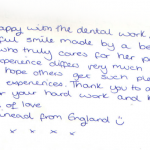 appy with the dental work,
ful smile made by a be
who truly cares for her p
xperience differs very much,
hope others get such pl
experiences. Thank you to a
r your hard work and k
of love
inead from England
x x x x